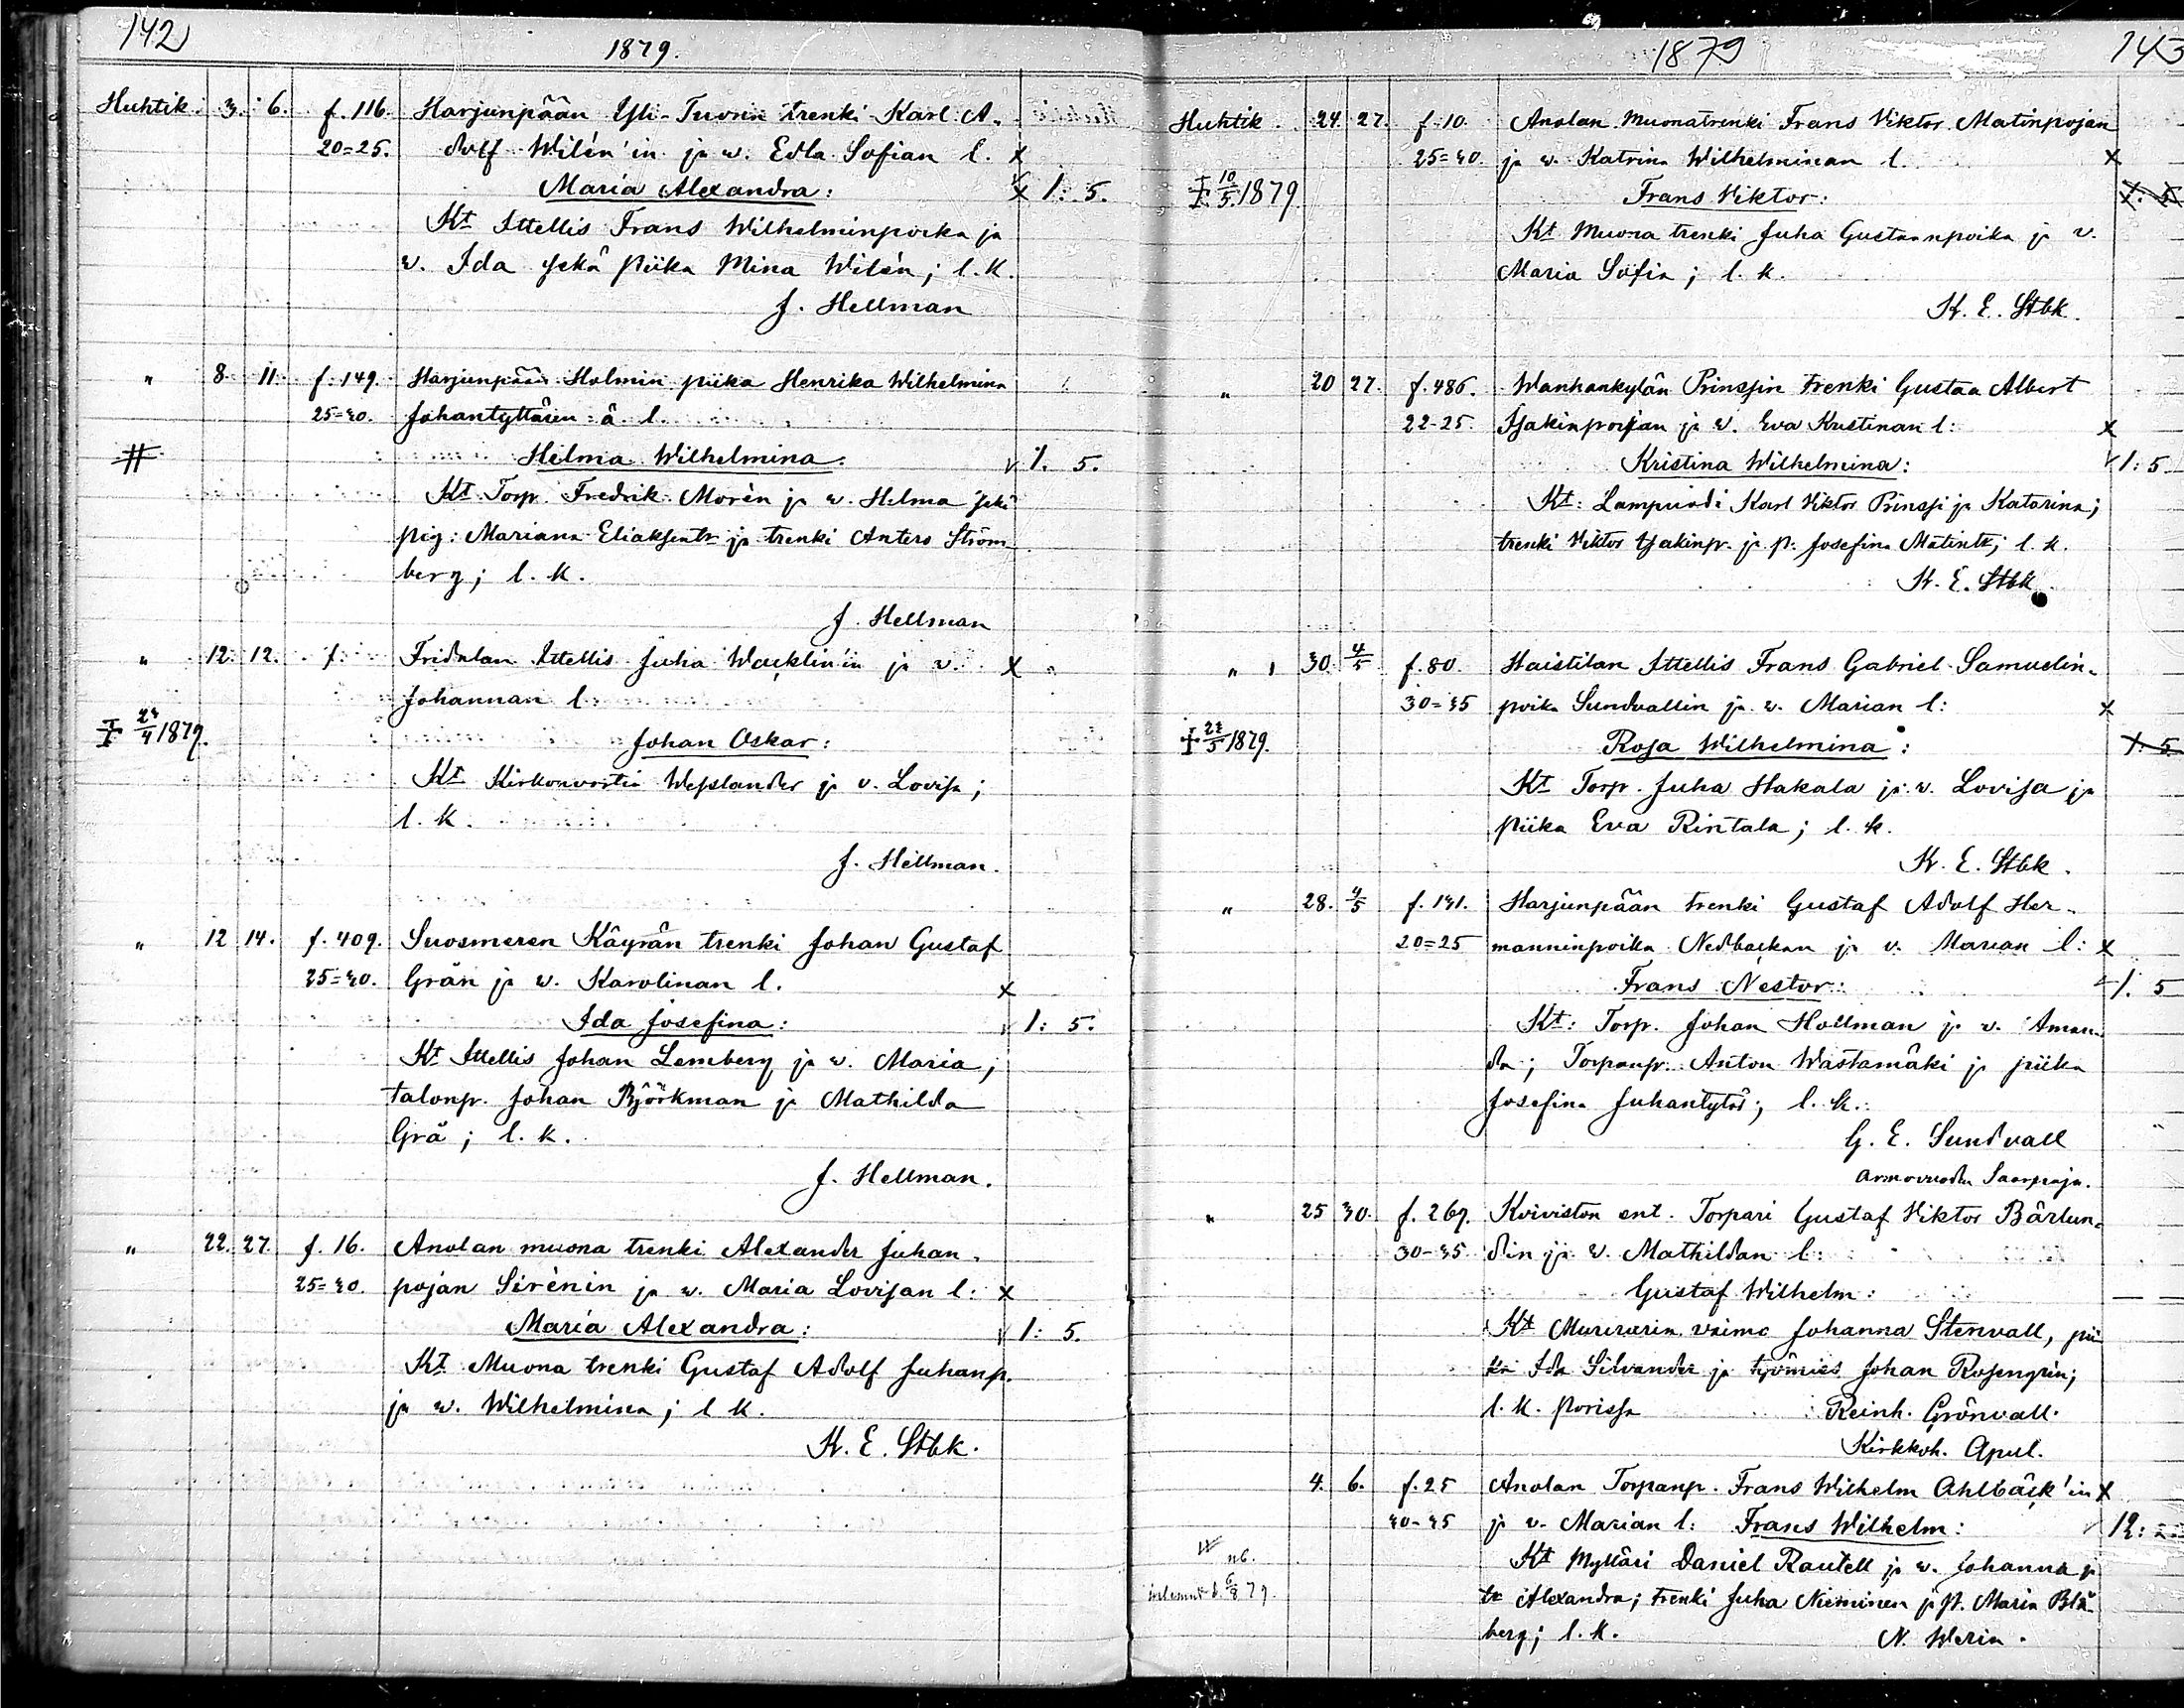 142
1879.
Huhtik. 3. 6. f. 116. Harjunpään Yli-Tuonin trenki Karl A-
20=25. dolf Wilén'in ja w. Edla Sofian l. x
Maria Alexandra: x 1: 5.
Kt Ittellis Frans Wilhelminpoika ja
w. Ida sekä piika Mina Wilén; l. k.
J. Hellman
" 8. 11. f. 149. Harjunpään Holmin piika Henrika Wilhelmina
25=30. Johantyttären ä. l.
Helma Wilhelmina. 1. 5.
Kt Torp. Fredrik Morèn ja w. Helma sekä
pig: Mariana Eliaksentr ja trenki Antero Ström
berg; l. k.
J. Hellman
" 12. 12. f. Fridalan Ittellis Juha Wacklin'in ja v. x "
Johannan l.
† 24/4 1879.
Johan Oskar:
Kt Kirkonvartia Wesslander ja v. Lovisa;
l. k.
J. Hellman.
" 12 14. f. 409. Suosmeren Käyrän trenki Johan Gustaf
25=30. Grän ja w. Karolinan l. x
Ida Josefina: 1: 5.
Kt Ittellis Johan Lemberg ja w. Maria;
talonp. Johan Björkman ja Mathilda
Grä; l. k.
J. Hellman.
" 22. 27. f. 16. Anolan muona trenki Alexander Juhan-
25=30. pojan Sirènin ja w. Maria Lovisan l: x
Maria Alexandra: 1: 5.
Kt Muona trenki Gustaf Adolf Juhanp.
ja w. Wilhelmina; l. k.
K. E. Stbk.
1879 143
Huhtik. 24. 27. f. 10. Anolan Muonatrenki Frans Viktor Matinpojan
25=30. ja w. Katrina Wilhelminan l. x
† 10/5 1879. Frans Viktor: 1. 5
Kt Muona trenki Juha Gustaanpoika ja v.
Maria Sofia; l. k.
K. E. Stbk.
" 20 27. f. 486. Wanhankylän Prinssin trenki Gustaa Albert
22-25. Isakinpoijan ja w. Eva Kustinan l: x
Kristina Wilhelmina: 1: 5
Kt: Lampuodi Karl Viktor Prinssi ja Katarina;
trenki Viktor Isakinp. ja p. Josefina Matintr; l. k.
K. E. Stbk.
" 30. 4/5 f. 80. Haistilan Ittellis Frans Gabriel Samuelin-
30=35 poika Sundvallin ja w. Marian l: x
† 22/5 1879. Rosa Wilhelmina: 1. 5
Kt Torp. Juha Hakala ja w. Lovisa ja
piika Eva Rintala; l. k.
K. E. Stbk.
" 28. 4/5 f. 141. Harjunpään trenki Gustaf Adolf Her-
20=25 manninpoika Nedbackan ja v. Marian l: x
Frans Nestor: 1. 5
Kt: Torp. Johan Hollman ja v. Aman-
da; Torpanp. Anton Wastamäki ja piika
Josefina Juhantytär; l. k.
G. E. Sundvall
armovuoden Saarnaja.
" 25 30. f. 269. Koiviston ent. Torpari Gustaf Viktor Bärlun-
30-35 din ja w. Mathildan l:
Gustaf Wilhelm: — —
Kt Murarin vaimo Johanna Stenvall, pii
ka Ida Silvander ja työmies Johan Rosengrèn;
l. k. Porissa Reinh. Grönvall.
Kirkkoh. Apul.
4. 6. f. 25 Anolan Torpanp. Frans Wilhelm Ahlbäck'in x
40-45 ja v. Marian l: Frans Wilhelm: 12:
Kt Mylläri Daniel Rautell ja w. Johanna ja
nb. 6/8 79. tr Alexandra; trenki Juha Nieminen ja p. Maria Blå
berg; l. k. N. Werin.